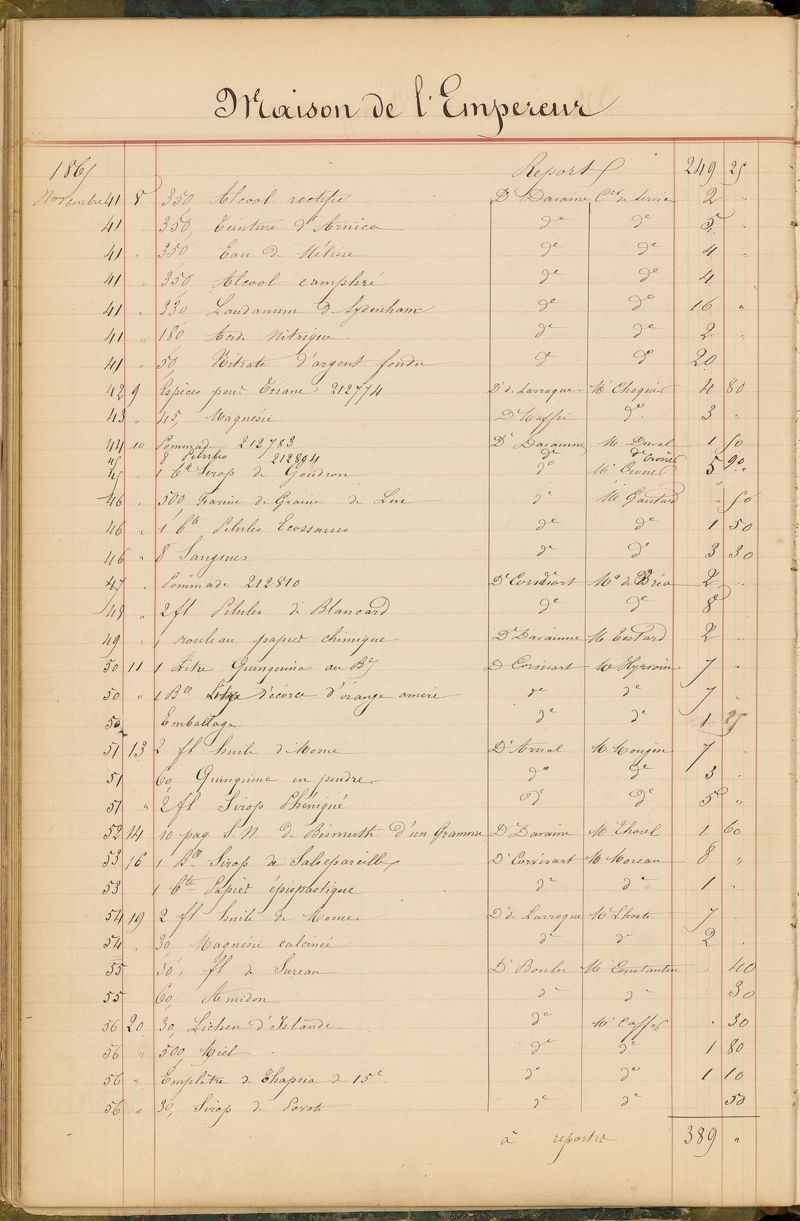 Maison de l'Empereur
1865 Report 249 25
Novembre 41 8 350, Alcool rectifié Dr Daraine Cer de service 2 "
41 " 350, Teinture d'Arnica do do 5 "
41 " 350 Eau de Mélisse do do 4 "
41 " 350 Alcool camphré do do 4
41 " 330 Laudanum de Sydenham do do 16 "
41 " 180 Acide Nitrique do do 2 "
41 " 50, Nitrate d'argent fondu do do 20
42 9 Espèces pour Tisane 212774 Dr de Larroque Mr 4 80
43 " 45, Magnésie Dr do 3 "
44 10 Pommade 212783 Dr Daraine Mr Duval 1 50
45 8 Pilules 212804 do 90
45 " 1 Bte Sirop de Goudron do Mr 5 "
46 " 500, Farine de Graine de Lin do Mr " 50
46 " 1 bte Pilules Ecossaises do do 1 50
46 " 8 Sangsues do do 3 30
47 " Pommade 212810 Dr Corvisart Mr de Bréa 2 "
48 " 2 fl Pilules de Blancard do do 8
49 " 1 rouleau papier chimique Dr Daraine Mr Testard 2 "
50 11 1 Litre Quinquina au Bx Dr Corvisart Mr Hyrvoix 7 "
50 " 1 Blle d'écorce d'orange amère do do 7 "
50 Emballage do do 1 25
51 13 2 fl huile de Morue Dr Arnal Mr Mougin 7 "
51 60, Quinquina en poudre do do 3 "
51 " 2 fl Sirop Phéniqué do do 5 "
52 14 10 paq. S. N. de Bismuth d'un Gramme Dr Daraine Mr Thorel 1 60
53 16 1 Blle Sirop de Salsepareille Dr Corvisart Mr Moreau 8 "
53 1 bte Papier épispastique do do 1 "
54 19 2 fl huile de Morue Dr de Larroque Mr Lhoste 7 "
54 " 30 Magnésie calcinée do do 2 "
55 30, fl de Sureau Dr Boulu Mr Constantin " 40
55 60, Amidon do do 30
56 20 30, Lichen d'Islande do Mr " 30
56 " 500, Miel do do 1 80
56 " Emplâtre de Thapsia de 15c do do 1 10
56 " 30, Sirop de Pavots do do 50
à reporter 389 "